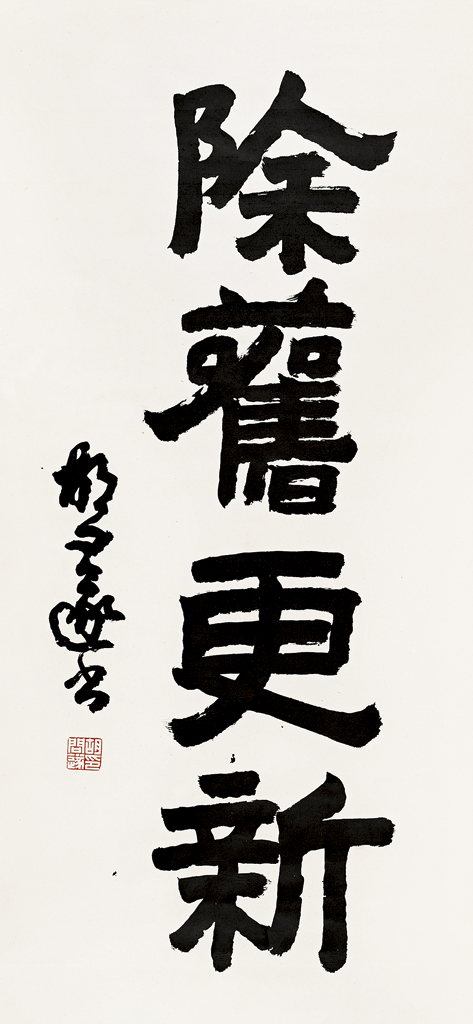 除舊更新
胡問遂书
胡問遂印